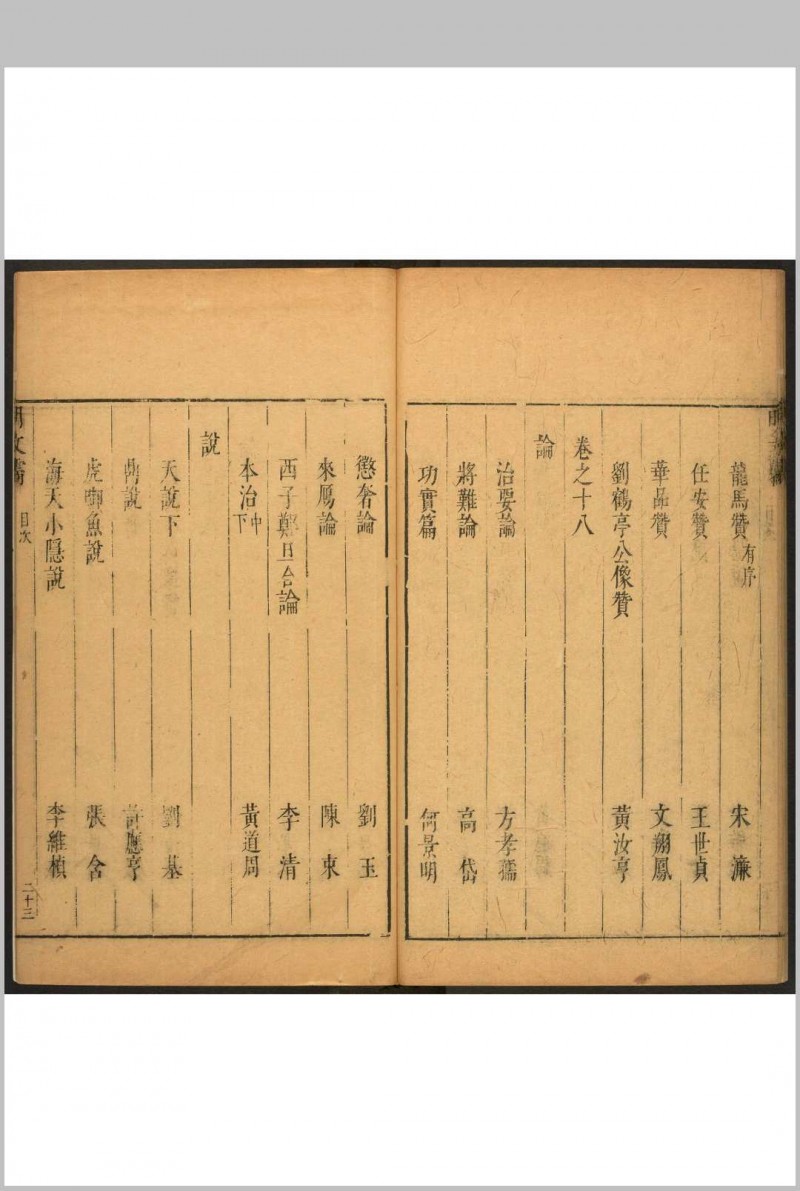 龍馬贊 有序 宋濂
任安贊 王世貞
華品贊 文翔鳳
劉鶴亭公像贊 黃汝亨
卷之十八
論
治要論 方孝孺
將難論 高岱
功實篇 何景明
懲奢論 劉玉
來鳳論 陳束
西子鄭旦台論 李清
本治 中下 黃道周
說
天說下 劉基
說 許應亨
虎 魚說 張含
海天小隱說 李維楨
明文 目次 二十三